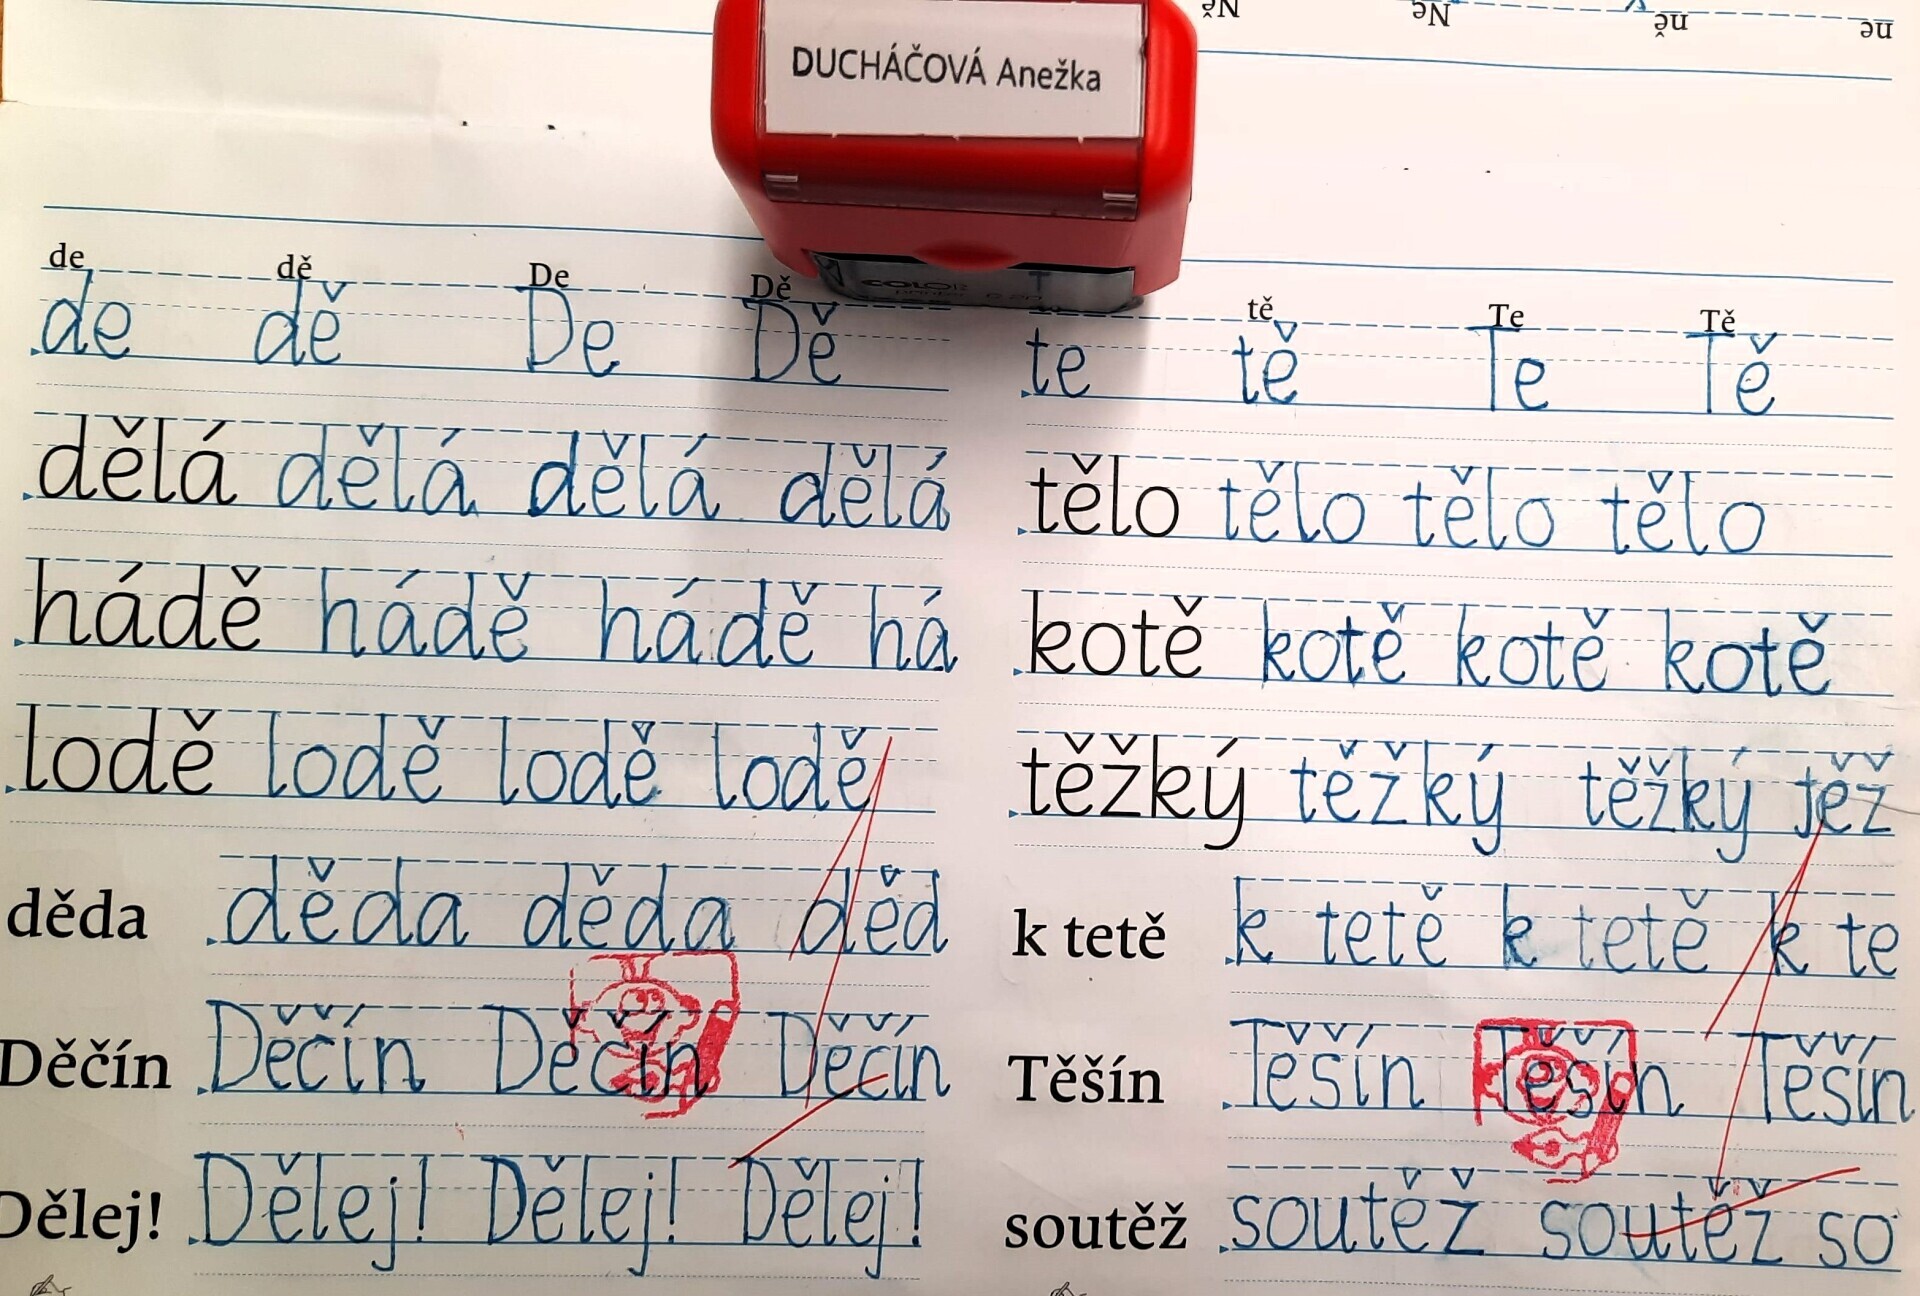 Ně Ne ně ne
DUCHÁČOVÁ Anežka
COLOP
printer C 20
de dě De Dě
de dě De Dě
dělá dělá dělá dělá
hádě hádě hádě há
lodě lodě lodě lodě
děda děda děda děd
Děčín Děčín Děčín Děčín
Dělej! Dělej! Dělej! Dělej!
tě Te Tě
te tě Te Tě
tělo tělo tělo tělo
kotě kotě kotě kotě
těžký těžký těžký jěž
k tetě k tetě k tetě k te
Těšín Těšín Těšín Těšín
soutěž soutěž soutěž so